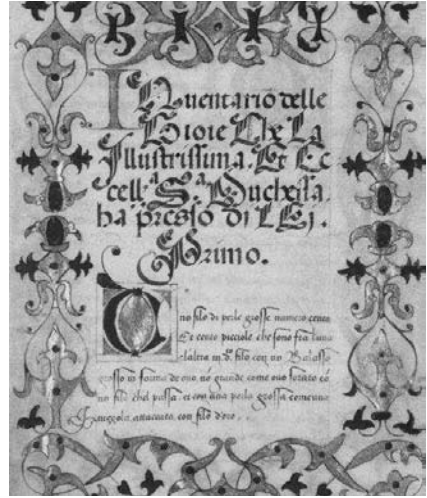 INuentario delle
Gioie Che La
Illustrissima. Et Ec
cell.ª S.ª Duchessa.
ha presso di LEi.
Primo.
Vno filo di perle grosse numero cento
Et cento piccole che sono fra luna
e laltra in d.º filo con no Balasso
grosso in forma de ouo, nó grande come ouo forato có
un filo chel passa. et con una perla grossa come una
attaccato con filo d'oro.